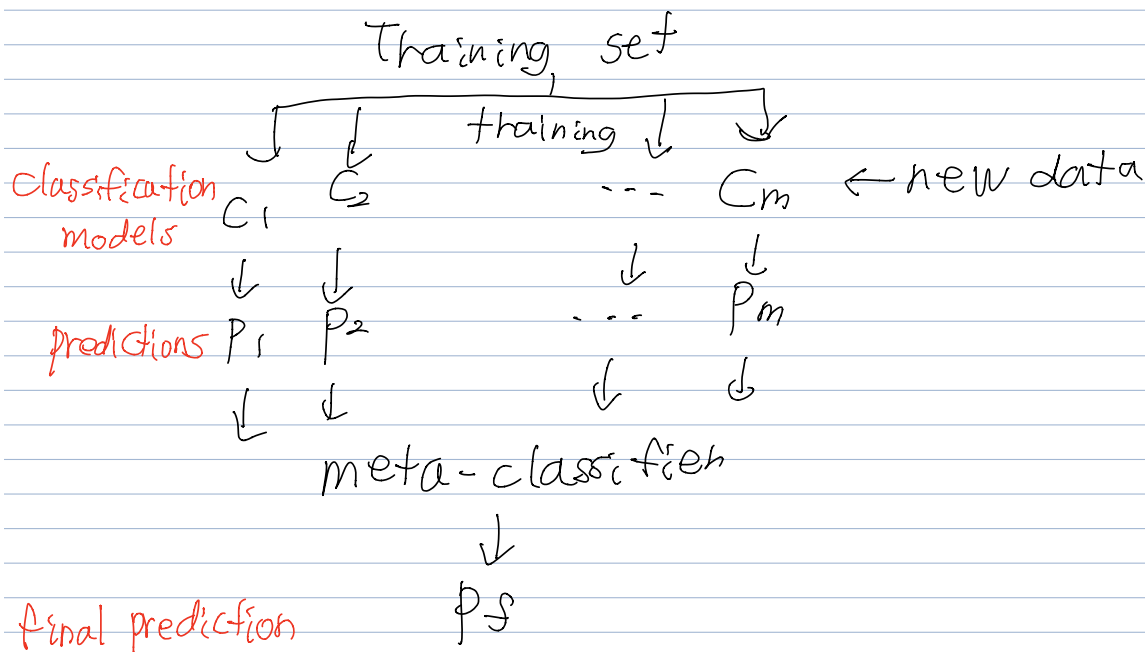 Training set
training
classification models
C1 C2 --- Cm ← new data
predictions P1 P2 --- Pm
meta-classifier
Pf
final prediction